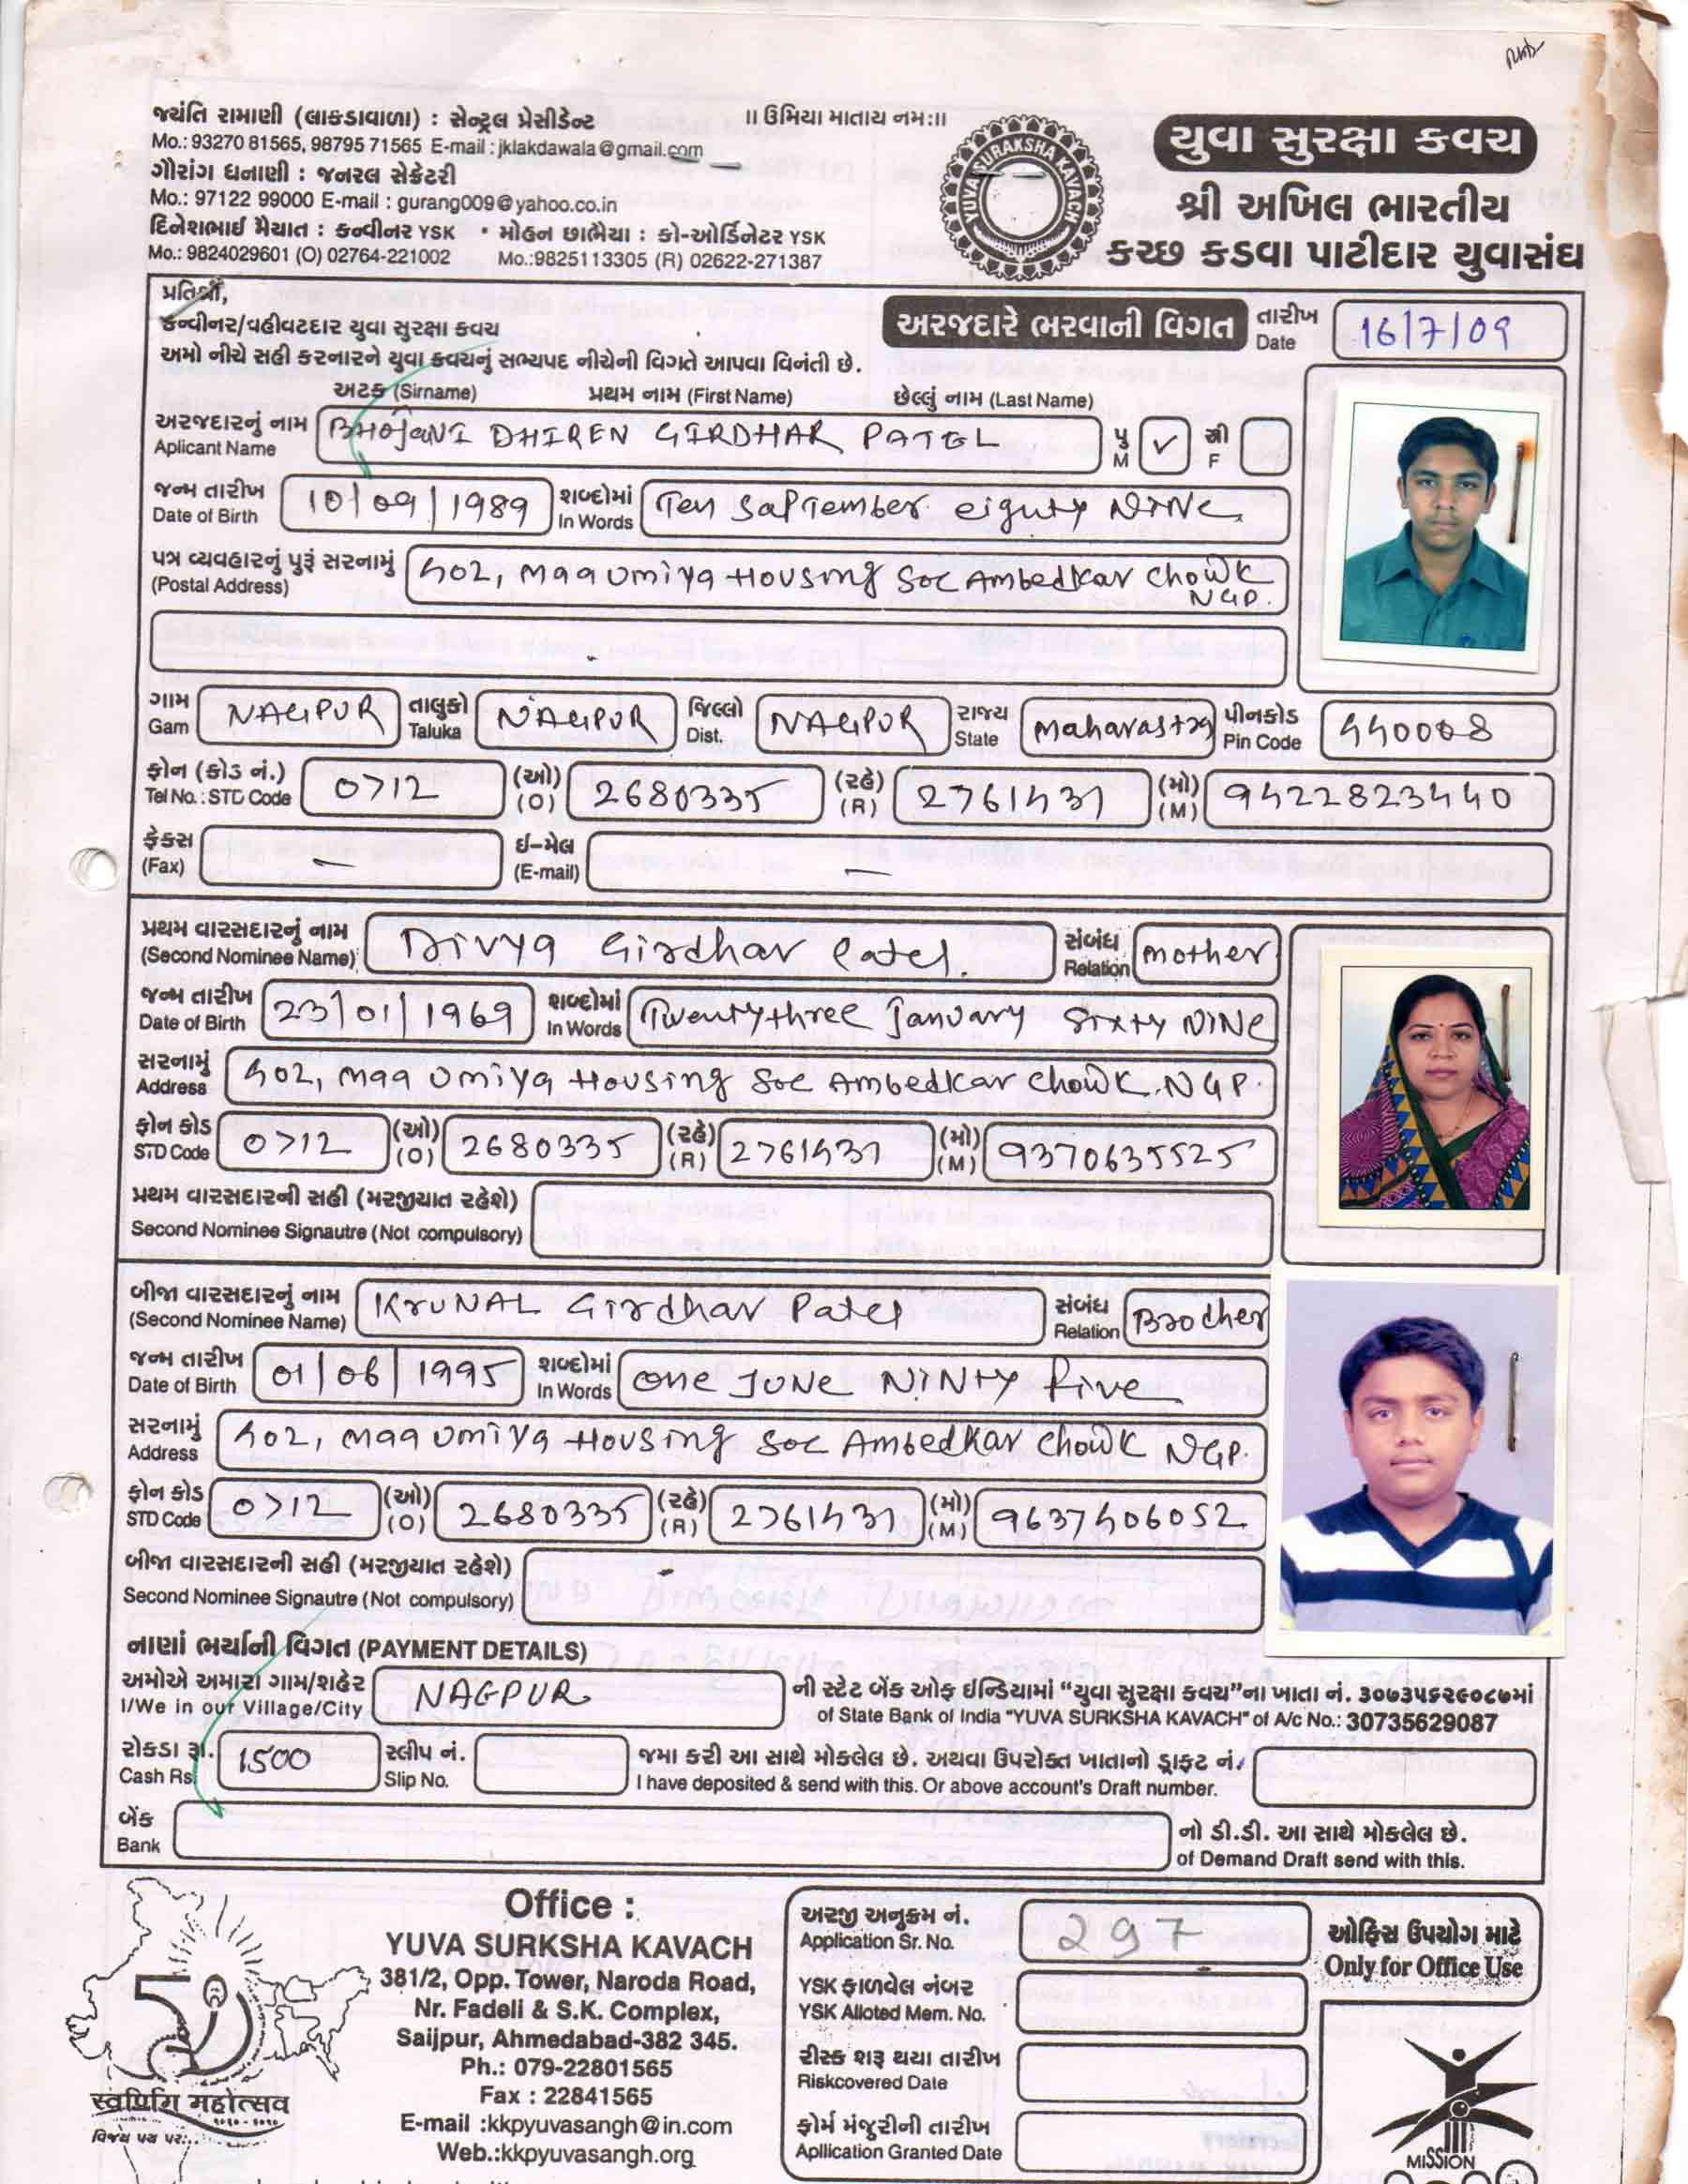 જયંતિ રામાણી (લાકડાવાળા) : સેન્ટ્રલ પ્રેસીડેન્ટ
Mo.: 93270 81565, 98795 71565 E-mail : jklakdawala@gmail.com
ગૌરાંગ ધનાણી : જનરલ સેક્રેટરી
Mo.: 97122 99000 E-mail : gurang009@yahoo.co.in
દિનેશભાઈ મૈયાત : કન્વીનર YSK • મોહન છાભૈયા : કો-ઓર્ડિનેટર YSK
Mo.: 9824029601 (O) 02764-221002 Mo.:9825113305 (R) 02622-271387
॥ ઉમિયા માતાય નમઃ॥
YUVA SURAKSHA KAVACH
યુવા સુરક્ષા કવચ
શ્રી અખિલ ભારતીય
કચ્છ કડવા પાટીદાર યુવાસંઘ
પ્રતિશ્રી,
કન્વીનર/વહીવટદાર યુવા સુરક્ષા કવચ
અમો નીચે સહી કરનારને યુવા કવચનું સભ્યપદ નીચેની વિગતે આપવા વિનંતી છે.
અરજદારે ભરવાની વિગત તારીખ Date 16/7/09
અટક (Sirname) પ્રથમ નામ (First Name) છેલ્લું નામ (Last Name)
અરજદારનું નામ Aplicant Name BHOJANI DHIREN GIRDHAR PATEL પુ M ✓ સ્ત્રી F
જન્મ તારીખ Date of Birth 10/09/1989 શબ્દોમાં In Words Ten SapTember eiguty NINe
પત્ર વ્યવહારનું પુરૂં સરનામું (Postal Address) 402, maa umiya Housing Soc Ambedkar chowk NGP.
ગામ Gam NAGPUR તાલુકો Taluka NAGPUR જિલ્લો Dist. NAGPUR રાજ્ય State Maharastra પીનકોડ Pin Code 440008
ફોન (કોડ નં.) Tel No.: STD Code 0712 (ઓ) (O) 2680335 (રહે) (R) 2761431 (મો) (M) 9422823440
ફેક્સ (Fax) — ઈ-મેલ (E-mail) —
પ્રથમ વારસદારનું નામ (Second Nominee Name) Divya Girdhar Patel. સંબંધ Relation mother
જન્મ તારીખ Date of Birth 23/01/1969 શબ્દોમાં In Words Twentythree January Sixty NINe
સરનામું Address 402, maa umiya Housing Soc Ambedkar chowk. NGP.
ફોન કોડ STD Code 0712 (ઓ) (O) 2680335 (રહે) (R) 2761431 (મો) (M) 9370635525
પ્રથમ વારસદારની સહી (મરજીયાત રહેશે)
Second Nominee Signautre (Not compulsory)
બીજા વારસદારનું નામ (Second Nominee Name) KrUNAL Girdhar Patel સંબંધ Relation Brodher
જન્મ તારીખ Date of Birth 01/06/1995 શબ્દોમાં In Words one JUNe NINTY five
સરનામું Address 402, maa umiya Housing Soc Ambedkar chowk NGP.
ફોન કોડ STD Code 0712 (ઓ) (O) 2680335 (રહે) (R) 2761431 (મો) (M) 9637406052
બીજા વારસદારની સહી (મરજીયાત રહેશે)
Second Nominee Signautre (Not compulsory)
નાણાં ભર્યાની વિગત (PAYMENT DETAILS)
અમોએ અમારા ગામ/શહેર NAGPUR ની સ્ટેટ બેંક ઓફ ઈન્ડિયામાં “યુવા સુરક્ષા કવચ”ના ખાતા નં. ૩૦૭૩૫૬૨૯૦૮૭માં
I/We in our Village/City of State Bank of India "YUVA SURKSHA KAVACH" of A/c No.: 30735629087
રોકડા રૂા. Cash Rs. 1500 સ્લીપ નં. Slip No. જમા કરી આ સાથે મોકલેલ છે. અથવા ઉપરોક્ત ખાતાનો ડ્રાફ્ટ નં.
I have deposited & send with this. Or above account's Draft number.
બેંક Bank નો ડી.ડી. આ સાથે મોકલેલ છે.
of Demand Draft send with this.
50
विजय पथ पर...
Office :
YUVA SURKSHA KAVACH
381/2, Opp. Tower, Naroda Road,
Nr. Fadeli & S.K. Complex,
Saijpur, Ahmedabad-382 345.
Ph.: 079-22801565
Fax : 22841565
E-mail :kkpyuvasangh@in.com
Web.:kkpyuvasangh.org
અરજી અનુક્રમ નં. Application Sr. No. 297
ઓફિસ ઉપયોગ માટે
Only for Office Use
YSK ફાળવેલ નંબર
YSK Alloted Mem. No.
રીસ્ક શરૂ થયા તારીખ
Riskcovered Date
ફોર્મ મંજૂરીની તારીખ
Apllication Granted Date
MISSION